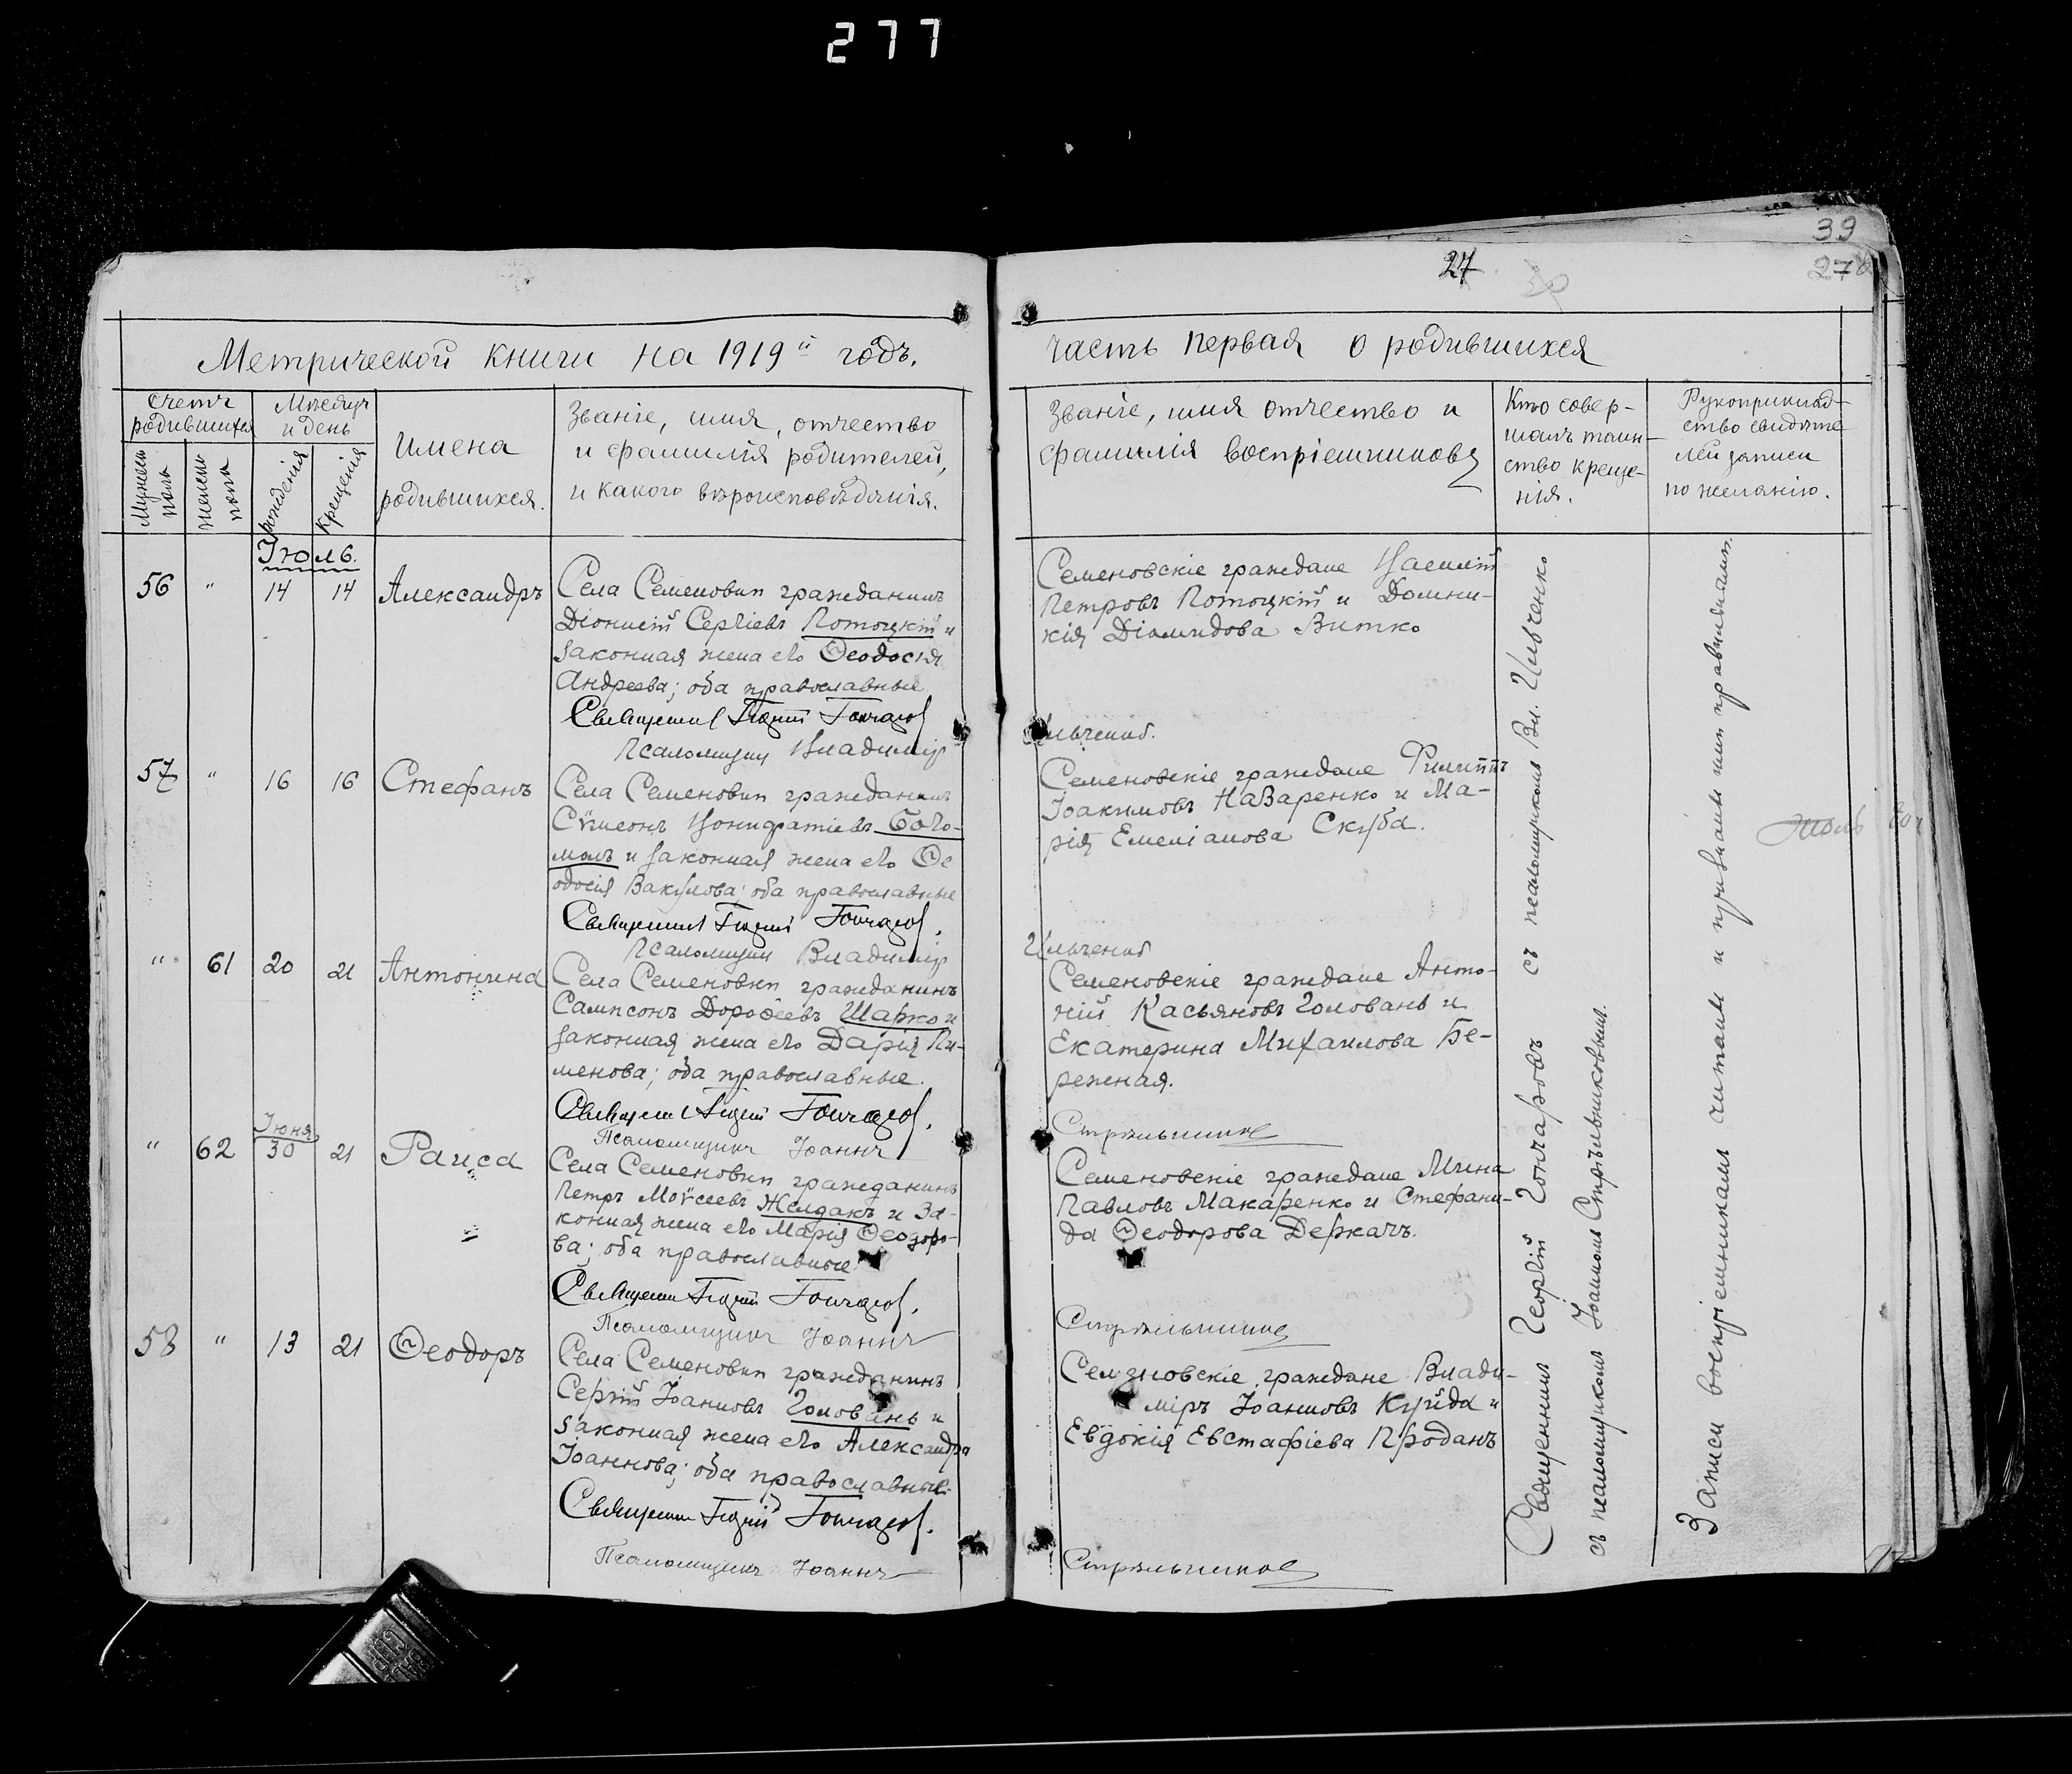 277
39
27
278
Метрической книги на 1919й годъ.
часть первая о родившихся
Счетъ родившихся
Мѣсяцъ и день
Мужеск пола
женска пола
рожденія
Крещенія
Имена
родившихся.
Званіе, имя, отчество
и фамилія родителей,
и какого вѣроисповѣданія.
Званіе, имя отчество и
фамилія воспріемниковъ
Кто совер-
шалъ таин-
ство креще-
нія.
Рукоприклад-
ство свидѣте
лей записи
по желанію.
Іюль.
56 " 14 14 Александръ
Села Семеновки гражданинъ
Діонисій Сергіевъ Потоцкій и
законная жена его Ѳеодосія
Андреева; оба православные
Священникъ Георгій Гончаровъ
Псаломщикъ Владиміръ
Семеновскіе граждане Василій
Петровъ Потоцкій и Домни-
кія Діомидова Витко
Ильченко.
57 " 16 16 Стефанъ
Села Семеновки гражданинъ
Сѵмеонъ Вонифатіевъ Бого-
молъ и законная жена его Ѳе
одосія Вакулова; оба православные
Священникъ Георгій Гончаровъ.
Псаломщикъ Владиміръ
Семеновскіе граждане Филиппъ
Іоакимовъ Назаренко и Ма-
рія Емеліанова Скуба.
Ильченко
" 61 20 21 Антонина
Села Семеновки гражданинъ
Сампсонъ Дороѳеевъ Шарко и
законная жена его Дарія Пи-
менова; оба православные.
Священникъ Георгій Гончаровъ.
Псаломщикъ Іоаннъ
Семеновскіе граждане Анто-
ній Касьяновъ Головань и
Екатерина Михаилова Бе-
режная.
Стрѣльниковъ
Іюня
" 62 30 21 Раиса
Села Семеновки гражданинъ
Петръ Моѵсеевъ Желдакъ и за-
конная жена его Марія Ѳеодоро-
ва; оба православные
Священникъ Георгій Гончаровъ.
Псаломщикъ Іоаннъ
Семеновскіе граждане Мина
Павловъ Макаренко и Стефани-
да Ѳеодорова Деркачъ.
Стрѣльниковъ
58 " 13 21 Ѳеодоръ
Села Семеновки гражданинъ
Сергій Іоанновъ Головань и
законная жена его Александра
Іоаннова; оба православные.
Священникъ Георгій Гончаровъ.
Псаломщикъ Іоаннъ
Семеновскіе граждане Влади-
міръ Іоанновъ Куйда и
Евдокія Евстафіева Проданъ
Стрѣльниковъ
Священникъ Георгій Гончаровъ съ псаломщикомъ Вл. Ильченко
съ псаломщикомъ Іоанномъ Стрѣльниковымъ.
Записи воспріемникамъ читаны и признаны ими правильными.